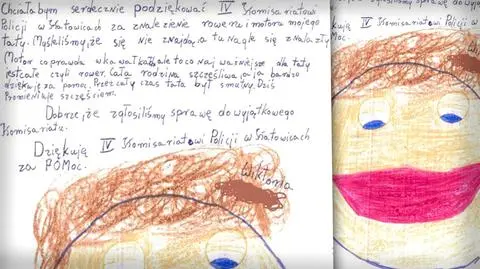 Chciałabym serdecznie podziękować IV Komisariatowi
Policji w Katowicach za znalezienie roweru i motora mojego
Taty. Myśleliśmy, że się nie znajdą, a tu nagle się znalazły
Motor coprawda w kawałkach, ale to co najważniejsze dla taty
jest całe czyli rower. Cała rodzina szczęśliwa, a ja bardzo
dziękuję za pomoc. Przez cały czas tata był smutny. Dziś
Promieniuje szczęściem.
Dobrze, że zgłosiliśmy sprawę do wyjątkowego
Komisariatu.
Dziękują IV Komisariatowi Policji w Katowicach
za POMoc.
Wiktoria
zgłosiliśmy sprawę do wyjątkowego
IV Komisariatowi Policji w K